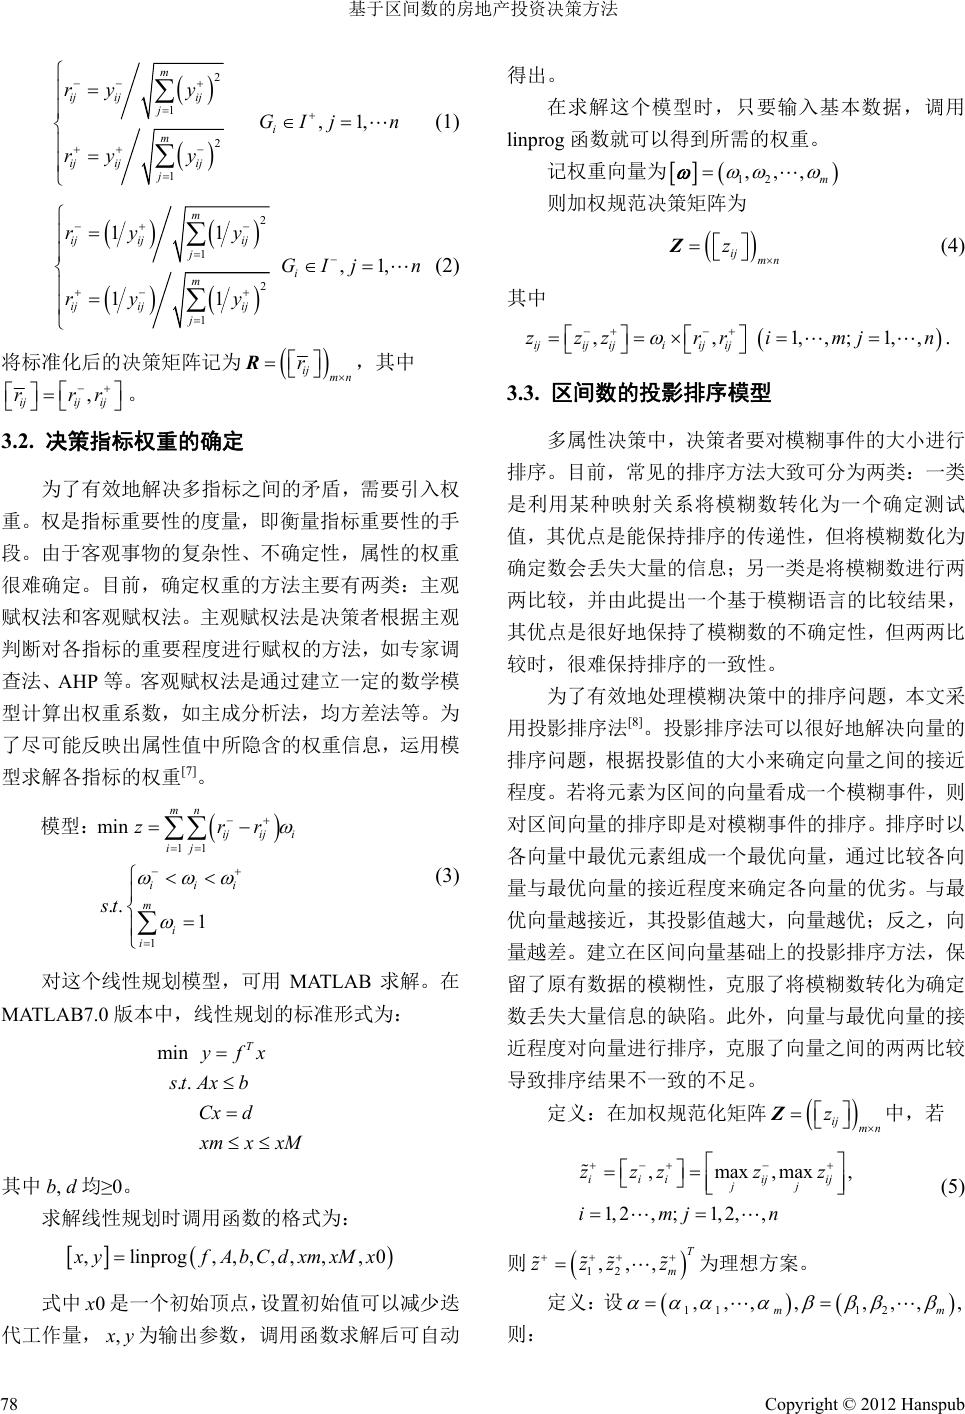 基于区间数的房地产投资决策方法
$$\begin{cases} r_{ij}^- = y_{ij}^- \Big/ \sqrt{\sum_{j=1}^{m} \left(y_{ij}^+\right)^2} \\ r_{ij}^+ = y_{ij}^+ \Big/ \sqrt{\sum_{j=1}^{m} \left(y_{ij}^-\right)^2} \end{cases} \quad G_i \in I^+, j = 1, \cdots n \quad (1)$$
$$\begin{cases} r_{ij}^- = 1 \big/ y_{ij}^+ \Big/ \sqrt{\sum_{j=1}^{m} \left(1 \big/ y_{ij}^-\right)^2} \\ r_{ij}^+ = 1 \big/ y_{ij}^- \Big/ \sqrt{\sum_{j=1}^{m} \left(1 \big/ y_{ij}^+\right)^2} \end{cases} \quad G_i \in I^-, j = 1, \cdots n \quad (2)$$
将标准化后的决策矩阵记为 $\boldsymbol{R} = \left(\left[\overline{r}_{ij}\right]\right)_{m \times n}$，其中
$\left[\overline{r}_{ij}\right] = \left[r_{ij}^-, r_{ij}^+\right]$。
3.2. 决策指标权重的确定
为了有效地解决多指标之间的矛盾，需要引入权
重。权是指标重要性的度量，即衡量指标重要性的手
段。由于客观事物的复杂性、不确定性，属性的权重
很难确定。目前，确定权重的方法主要有两类：主观
赋权法和客观赋权法。主观赋权法是决策者根据主观
判断对各指标的重要程度进行赋权的方法，如专家调
查法、AHP 等。客观赋权法是通过建立一定的数学模
型计算出权重系数，如主成分析法，均方差法等。为
了尽可能反映出属性值中所隐含的权重信息，运用模
型求解各指标的权重[7]。
模型：$\min z = \sum_{i=1}^{m} \sum_{j=1}^{n} \left(r_{ij}^- - r_{ij}^+\right) \omega_i$
$$s.t. \begin{cases} \omega_i^- < \omega_i < \omega_i^+ \\ \sum_{i=1}^{m} \omega_i = 1 \end{cases} \quad (3)$$
对这个线性规划模型，可用 MATLAB 求解。在
MATLAB7.0 版本中，线性规划的标准形式为：
$\min \ y = f^T x$
$s.t. \ Ax \leq b$
$Cx = d$
$xm \leq x \leq xM$
其中 b, d 均≥0。
求解线性规划时调用函数的格式为：
$[x, y] = \text{linprog}(f, A, b, C, d, xm, xM, x0)$
式中 x0 是一个初始顶点，设置初始值可以减少迭
代工作量，x, y 为输出参数，调用函数求解后可自动
得出。
在求解这个模型时，只要输入基本数据，调用
linprog 函数就可以得到所需的权重。
记权重向量为 $[\boldsymbol{\omega}] = (\omega_1, \omega_2, \cdots, \omega_m)$
则加权规范决策矩阵为
$$\boldsymbol{Z} = \left(\left[z_{ij}\right]\right)_{m \times n} \quad (4)$$
其中
$z_{ij} = \left[z_{ij}^-, z_{ij}^+\right] = \omega_i \times \left[r_{ij}^-, r_{ij}^+\right] \ (i = 1, \cdots, m; j = 1, \cdots, n).$
3.3. 区间数的投影排序模型
多属性决策中，决策者要对模糊事件的大小进行
排序。目前，常见的排序方法大致可分为两类：一类
是利用某种映射关系将模糊数转化为一个确定测试
值，其优点是能保持排序的传递性，但将模糊数化为
确定数会丢失大量的信息；另一类是将模糊数进行两
两比较，并由此提出一个基于模糊语言的比较结果，
其优点是很好地保持了模糊数的不确定性，但两两比
较时，很难保持排序的一致性。
为了有效地处理模糊决策中的排序问题，本文采
用投影排序法[8]。投影排序法可以很好地解决向量的
排序问题，根据投影值的大小来确定向量之间的接近
程度。若将元素为区间的向量看成一个模糊事件，则
对区间向量的排序即是对模糊事件的排序。排序时以
各向量中最优元素组成一个最优向量，通过比较各向
量与最优向量的接近程度来确定各向量的优劣。与最
优向量越接近，其投影值越大，向量越优；反之，向
量越差。建立在区间向量基础上的投影排序方法，保
留了原有数据的模糊性，克服了将模糊数转化为确定
数丢失大量信息的缺陷。此外，向量与最优向量的接
近程度对向量进行排序，克服了向量之间的两两比较
导致排序结果不一致的不足。
定义：在加权规范化矩阵 $\boldsymbol{Z} = \left(\left[z_{ij}\right]\right)_{m \times n}$ 中，若
$$\tilde{z}_i^+ = \left[z_i^-, z_i^+\right] = \left[\max_j z_{ij}^-, \max_j z_{ij}^+\right], \quad (5)$$
$i = 1, 2 \cdots, m; j = 1, 2, \cdots, n$
则 $\tilde{z}^+ = \left(\tilde{z}_1^+, \tilde{z}_2^+, \cdots, \tilde{z}_m^+\right)^T$ 为理想方案。
定义：设 $\alpha = (\alpha_1, \alpha_1, \cdots, \alpha_m), \beta = (\beta_1, \beta_2, \cdots, \beta_m),$
则：
78
Copyright © 2012 Hanspub